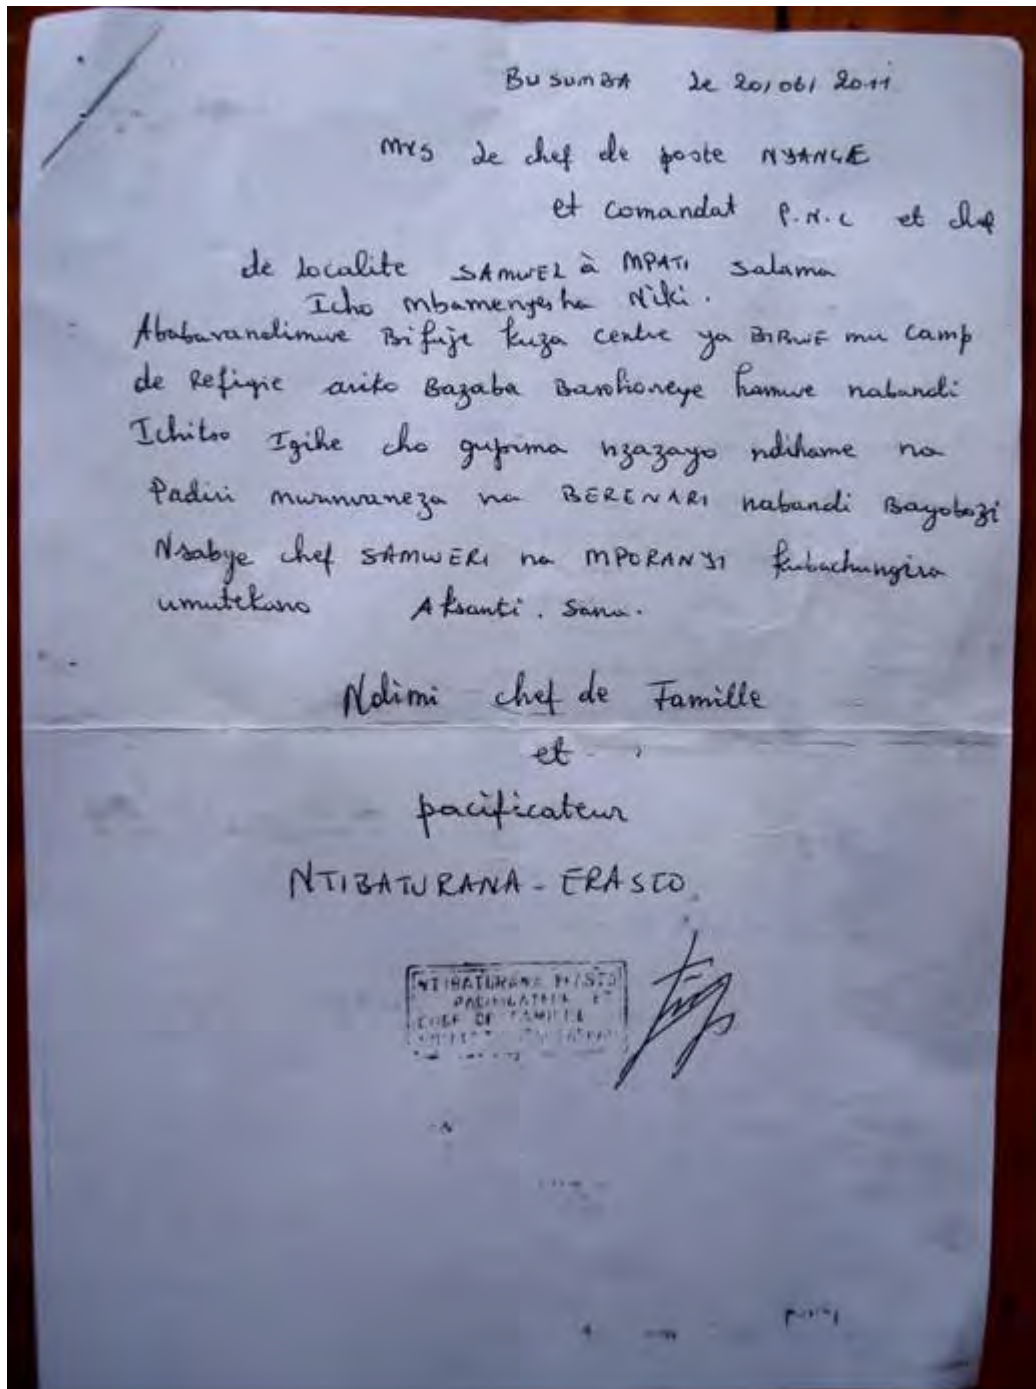 BUSUMBA le 20/06/2011
Mrs le chef de poste NYANGE
et comandat P.N.C et chef
de Localite SAMWEL à MPATI Salama
Icho Mbamenyesha Niki.
Ababavandimwe Bifuje kuza centre ya BIBWE mu camp
de Refigie ariko Bazaba Barohoneye hamwe nabandi
Ichitso Igihe cho gupima nzazayo ndihame na
Padiri murunvaneza na BERENARI nabandi Bayobozi
Nsabye chef SAMWERI na MPORANYI kubachungira
umutekano Aksanti. Sana.
Ndimi chef de Famille
et
pacificateur
NTIBATURANA - ERASTO
NTIBATURANA
PACIFICATEUR ET
CHEF DE FAMILLE